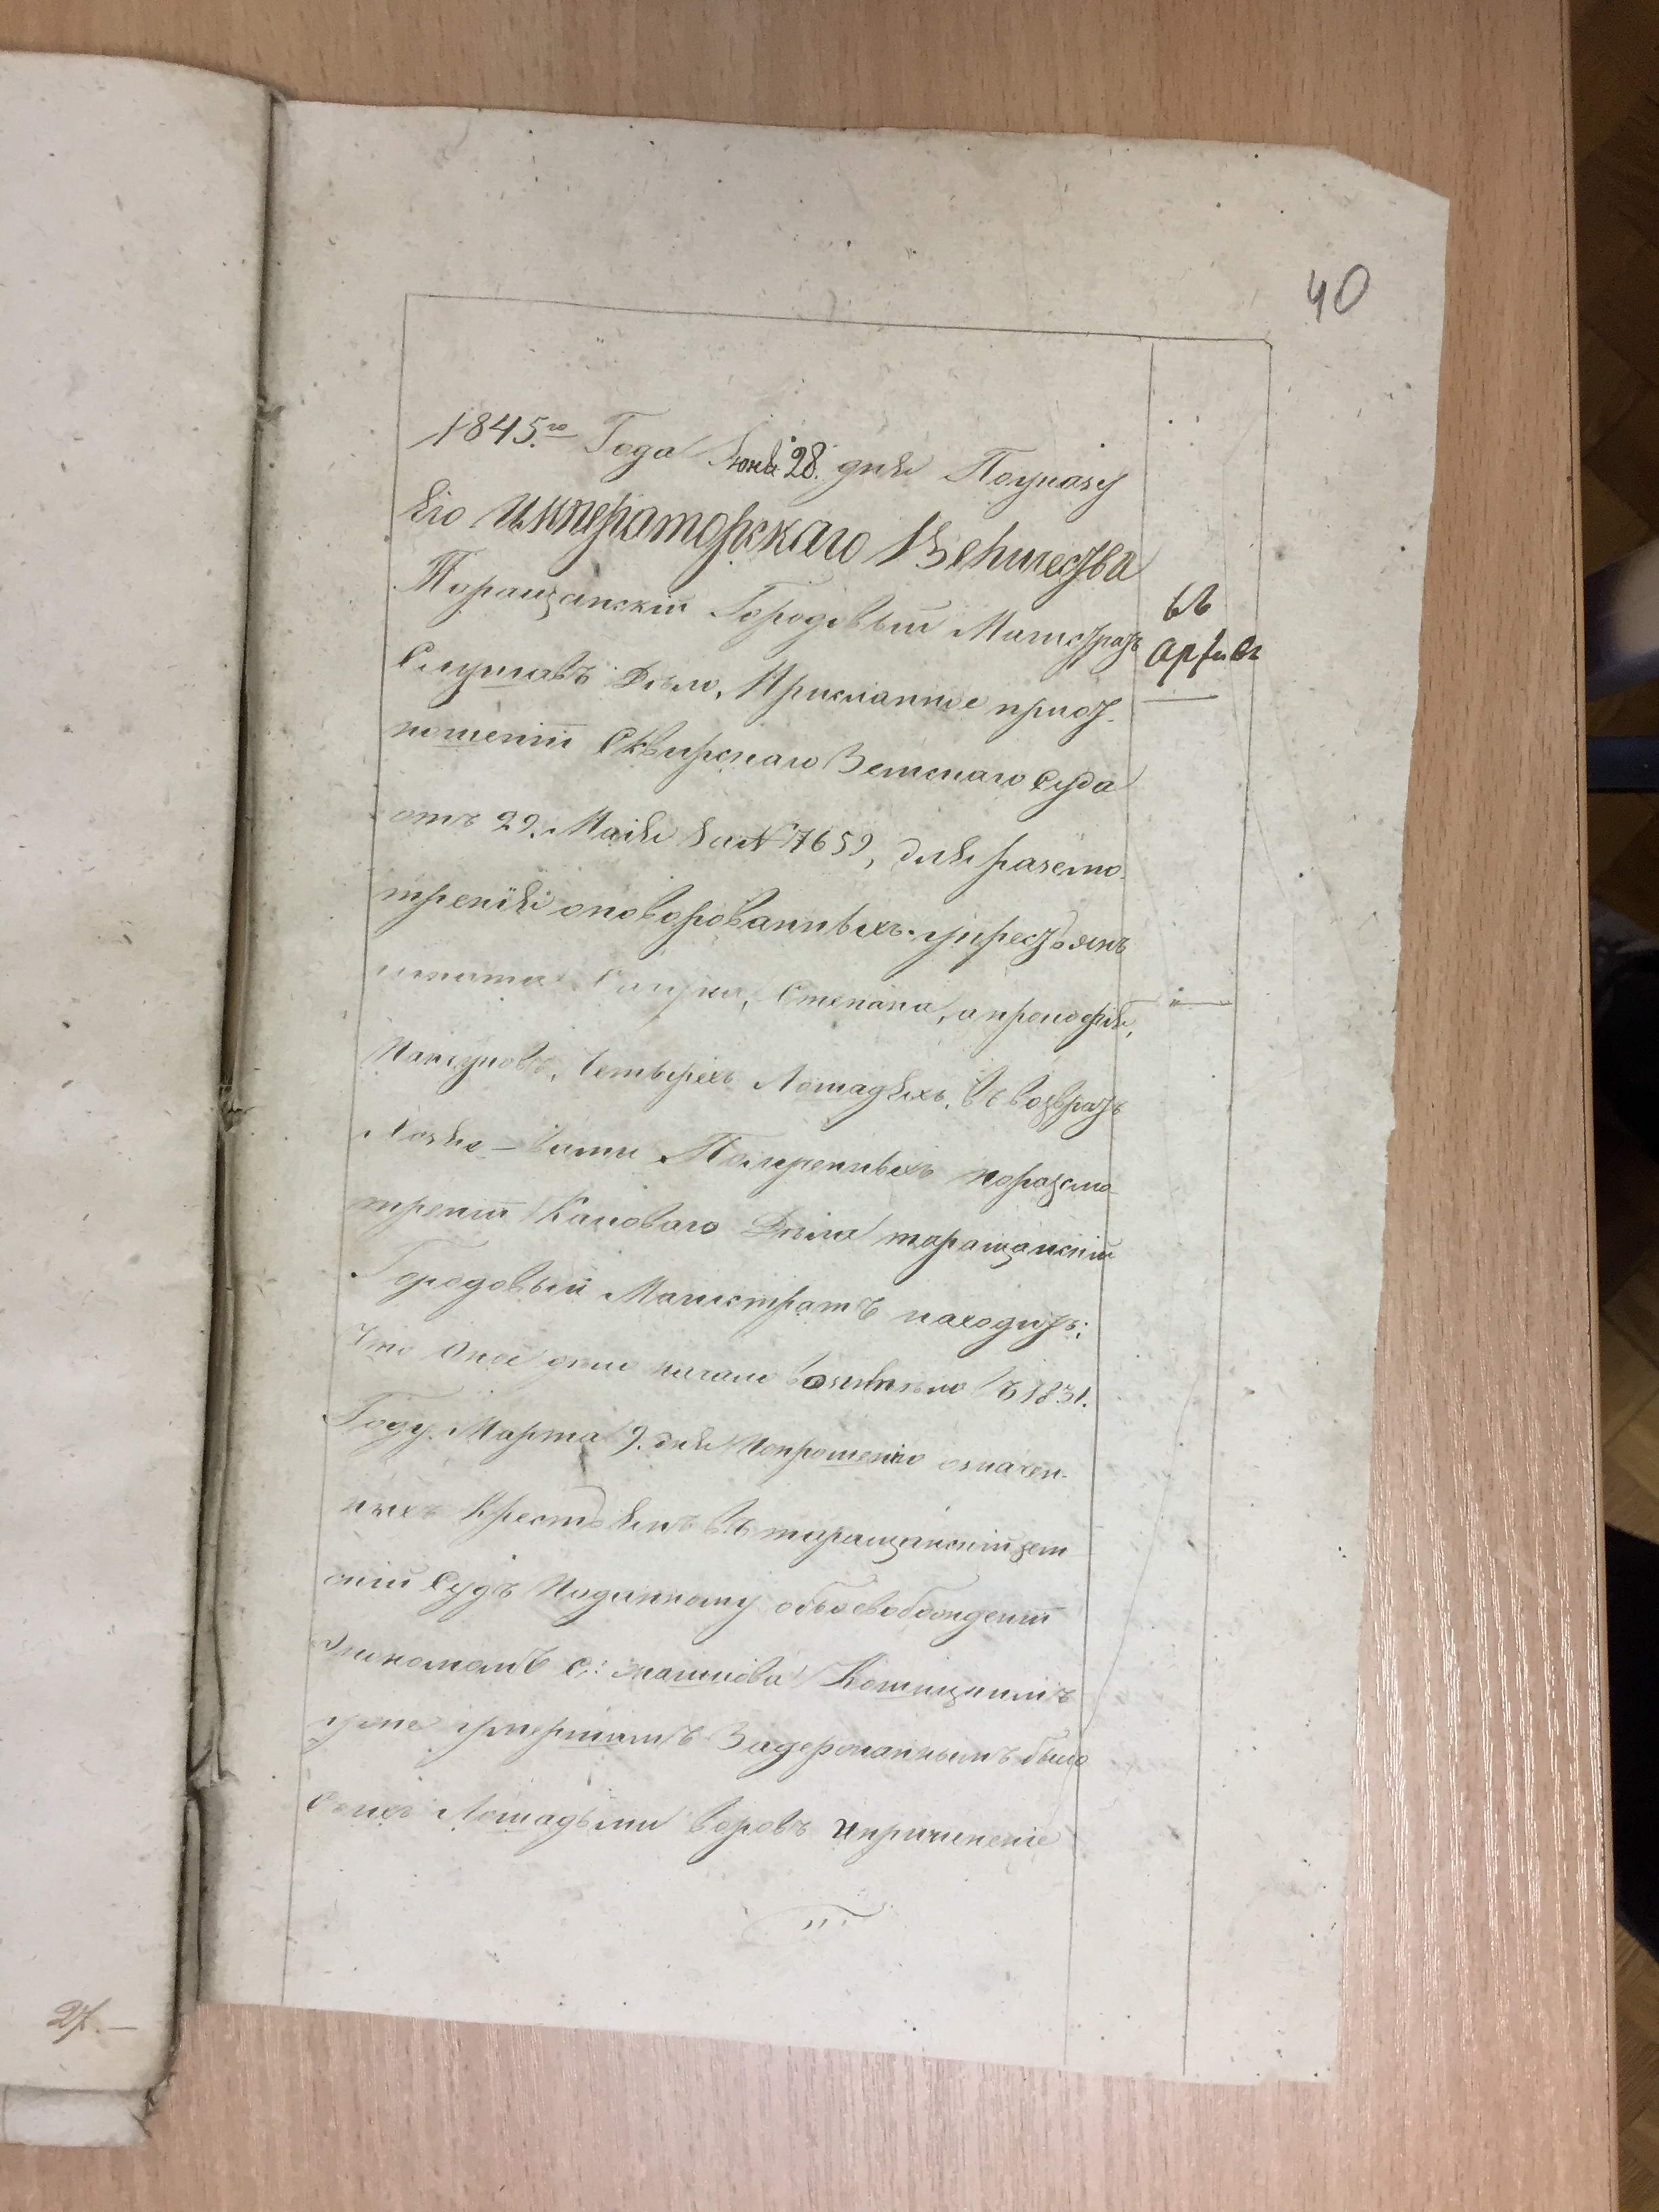 40
1845.го Года Июня 28. дня Поуказу
Его Императорскаго Величества
Таращанскій Городовый Магистратъ
въ
Архивъ
Слушавъ Дѣло, Присланное приот-
ношеніи Сквирскаго Земскаго Суда
отъ 29. Маія за № 7659, для разсмо-
тренія оповорованныхъ укрестьянъ
Степана, апрокофія,
Четырехъ Лошадяхъ, въ возвратъ
поразсмо-
треніи Каковаго Дѣла таращанскій
Городовый Магистратъ находитъ;
Что Оное дѣло начало возъимѣло въ 1831.
Году Марта 9. дня Попрошенію означен-
ныхъ Крестьянъ въ таращанскій зем
скій Судъ Поданному обосвобожденіи
Экономомъ с:
уже умершимъ Задержанныхъ было
Сихъ Лошадьми воровъ ипричиненіе
27.—